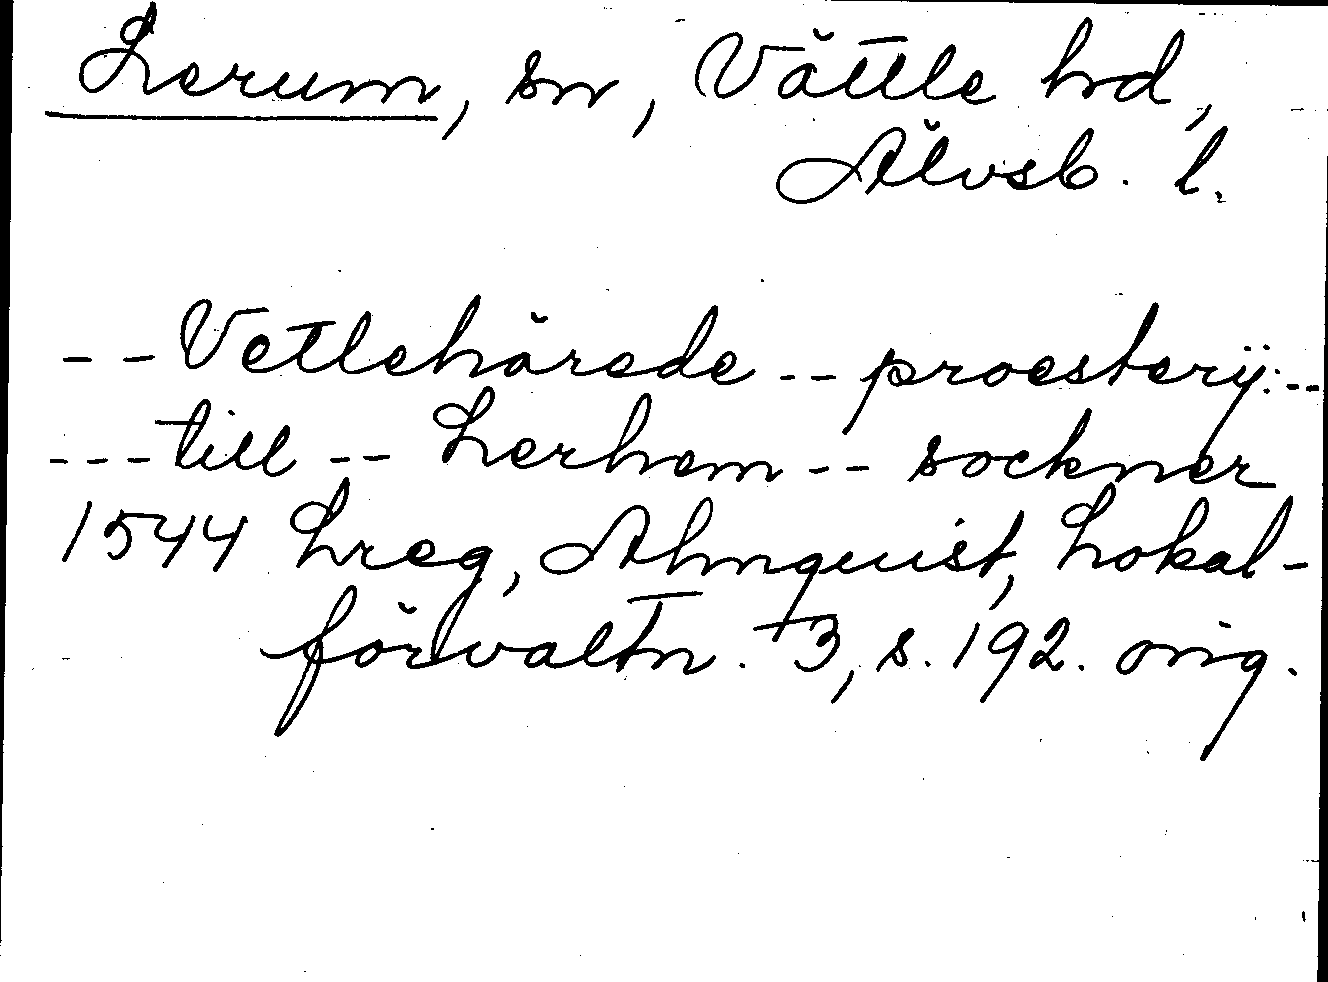 Lerum, sn, Vättle hd,
Älvsb. l.
-- Vetlehärede -- proesterÿ: --
--- till -- Lerhem -- sockner
1544 Lreg, Almquist, Lokal-
förvaltn. 3, s. 192. orig.